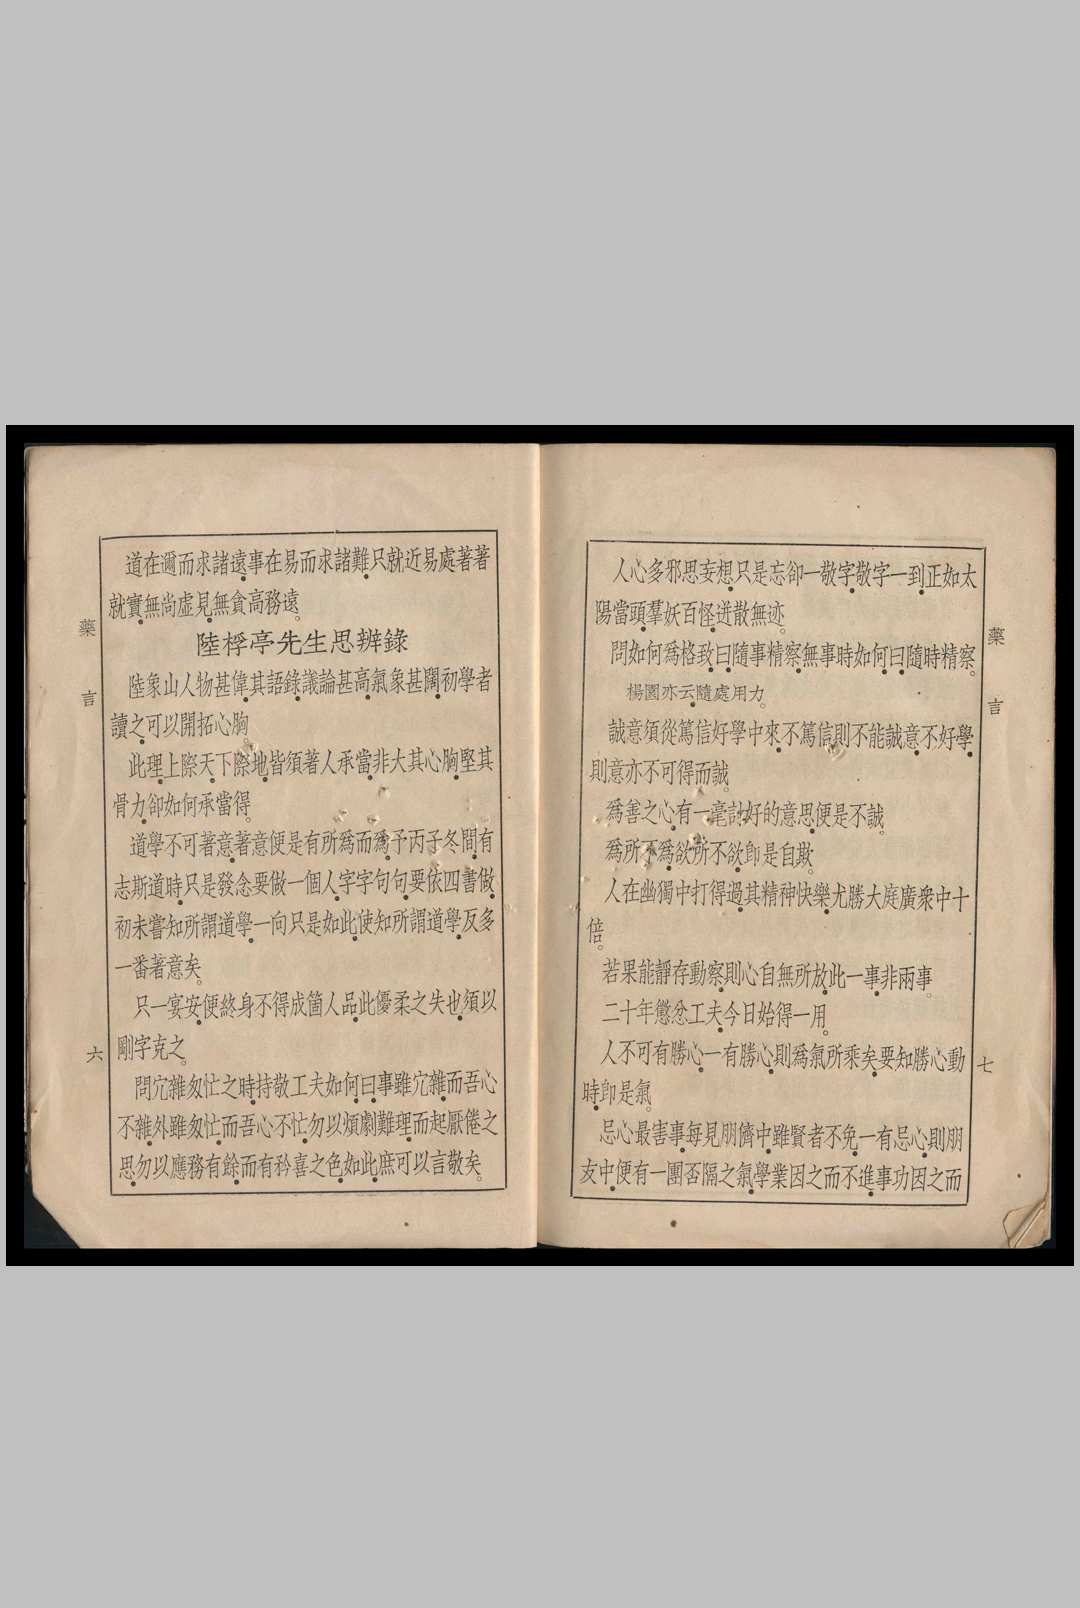 藥言
六
道在邇而求諸遠事在易而求諸難只就近易處著著
就實無尚虛見無貪高務遠。
陸桴亭先生思辨錄
陸象山人物甚偉其語錄議論甚高氣象甚闊初學者
讀之可以開拓心胸。
此理上際天下際地皆須著人承當非大其心胸堅其
骨力卻如何承當得。
道學不可著意著意便是有所爲而爲予丙子冬間有
志斯道時只是發念要做一個人字字句句要依四書做
初未嘗知所謂道學一向只是如此使知所謂道學反多
一番著意矣。
只一宴安便終身不得成箇人品此優柔之失也須以
剛字克之。
問冗雜匆忙之時持敬工夫如何曰事雖冗雜而吾心
不雜外雖匆忙而吾心不忙勿以煩劇難理而起厭倦之
思勿以應務有餘而有矜喜之色如此庶可以言敬矣。
人心多邪思妄想只是忘卻一敬字敬字一到正如太
陽當頭羣妖百怪迸散無迹。
問如何爲格致曰隨事精察無事時如何曰隨時精察。
楊園亦云隨處用力。
誠意須從篤信好學中來不篤信則不能誠意不好學
則意亦不可得而誠。
爲善之心有一毫討好的意思便是不誠。
爲所不爲欲所不欲卽是自欺。
人在幽獨中打得過其精神快樂尤勝大庭廣衆中十
倍。
若果能靜存動察則心自無所放此一事非兩事。
二十年懲忿工夫今日始得一用。
人不可有勝心一有勝心則爲氣所乘矣要知勝心動
時卽是氣。
忌心最害事每見朋儕中雖賢者不免一有忌心則朋
友中便有一團否隔之氣學業因之而不進事功因之而
藥言
七